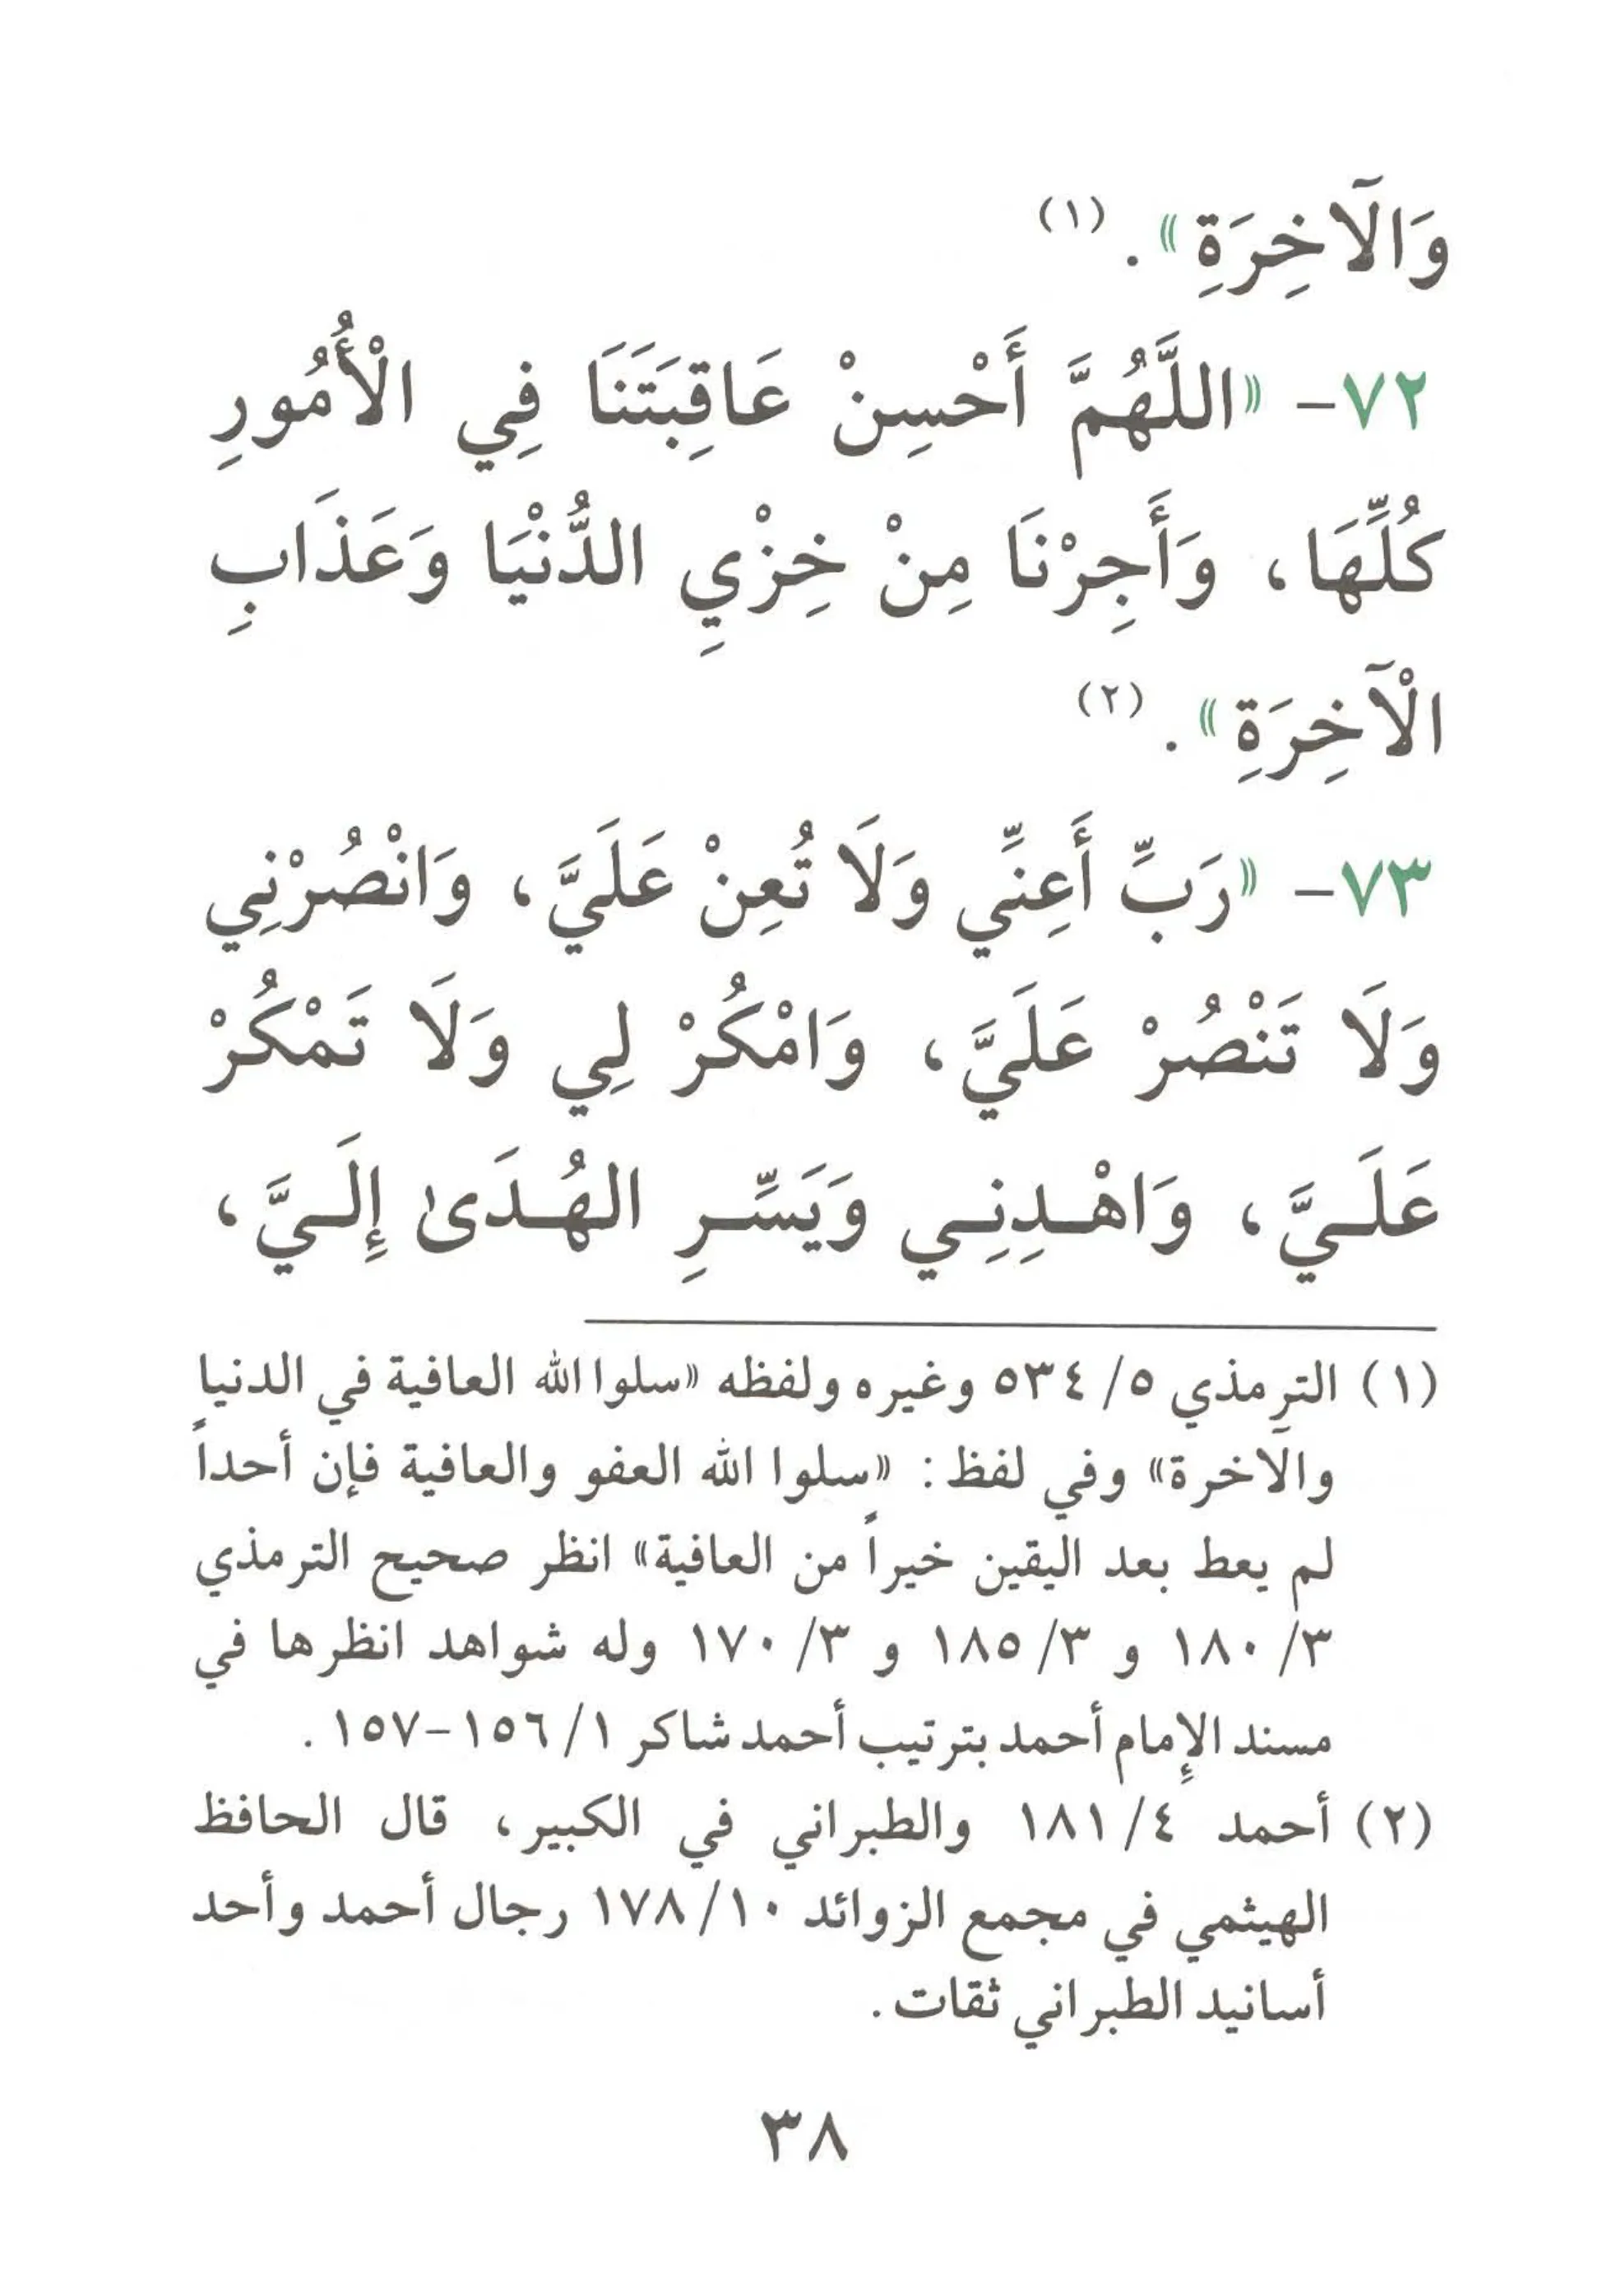 وَالْآخِرَةِ». (١)
٧٢- «اللَّهُمَّ أَحْسِنْ عَاقِبَتَنَا فِي الْأُمُورِ
كُلِّهَا، وَأَجِرْنَا مِنْ خِزْيِ الدُّنْيَا وَعَذَابِ
الْآخِرَةِ». (٢)
٧٣- «رَبِّ أَعِنِّي وَلَا تُعِنْ عَلَيَّ، وَانْصُرْنِي
وَلَا تَنْصُرْ عَلَيَّ، وَامْكُرْ لِي وَلَا تَمْكُرْ
عَلَـيَّ، وَاهْـدِنِـي وَيَسِّـرِ الهُـدَىٰ إِلَـيَّ،
(١) الترمذي ٥/ ٥٣٤ وغيره ولفظه «سلوا الله العافية في الدنيا
والآخرة» وفي لفظ: «سلوا الله العفو والعافية فإن أحداً
لم يعط بعد اليقين خيراً من العافية» انظر صحيح الترمذي
٣/ ١٨٠ و ٣/ ١٨٥ و ٣/ ١٧٠ وله شواهد انظرها في
مسند الإمام أحمد بترتيب أحمد شاكر ١/ ١٥٦-١٥٧.
(٢) أحمد ٤/ ١٨١ والطبراني في الكبير، قال الحافظ
الهيثمي في مجمع الزوائد ١٠/ ١٧٨ رجال أحمد وأحد
أسانيد الطبراني ثقات.
٣٨